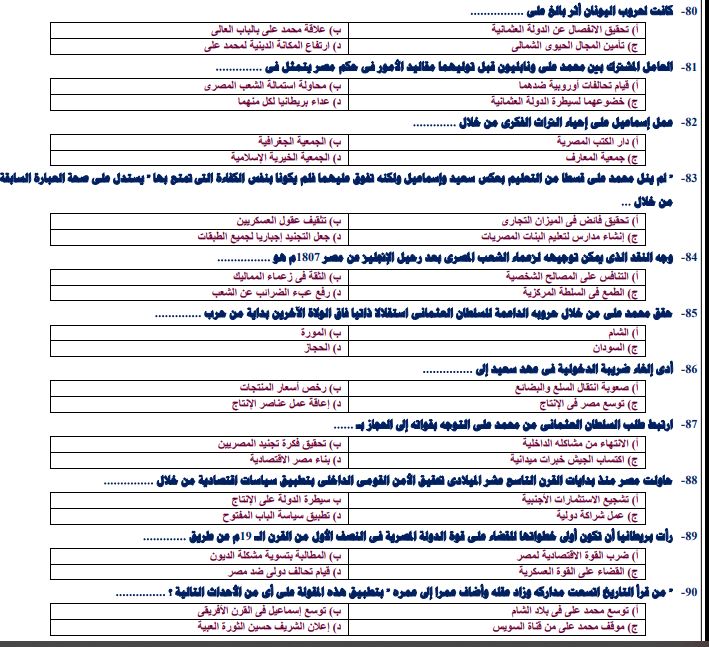 80- كانت لحروب اليونان أثر بالغ على ................
أ) تحقيق الانفصال عن الدولة العثمانية ب) علاقة محمد على بالباب العالى
ج) تأمين المجال الحيوى الشمالى د) ارتفاع المكانة الدينية لمحمد على
81- العامل المشترك بين محمد على ونابليون قبل توليهما مقاليد الأمور فى حكم مصر يتمثل فى ..............
أ) قيام تحالفات أوروبية ضدهما ب) محاولة استمالة الشعب المصرى
ج) خضوعهما لسيطرة الدولة العثمانية د) عداء بريطانيا لكل منهما
82- عمل إسماعيل على إحياء التراث الفكرى من خلال .............
أ) دار الكتب المصرية ب) الجمعية الجغرافية
ج) جمعية المعارف د) الجمعية الخيرية الإسلامية
83- " لم ينل محمد على قسطا من التعليم بعكس سعيد وإسماعيل ولكنه تفوق عليهما فلم يكونا بنفس الكفاءة التى تمتع بها " يستدل على صحة العبارة السابقة
من خلال ...
أ) تحقيق فائض فى الميزان التجارى ب) تثقيف عقول العسكريين
ج) إنشاء مدارس لتعليم البنات المصريات د) جعل التجنيد إجباريا لجميع الطبقات
84- وجه النقد الذى يمكن توجيهه لزعماء الشعب المصرى بعد رحيل الإنجليز من مصر 1807م هو ................
أ) التنافس على المصالح الشخصية ب) الثقة فى زعماء المماليك
ج) الطمع فى السلطة المركزية د) رفع عبء الضرائب عن الشعب
85- حقق محمد على من خلال حروبه الداعمة للسلطان العثمانى استقلالا ذاتيا فاق الولاة الآخرين بداية من حرب ..............
أ) الشام ب) المورة
ج) السودان د) الحجاز
86- أدى إلغاء ضريبة الدخولية فى عهد سعيد إلى ...............
أ) صعوبة انتقال السلع والبضائع ب) رخص أسعار المنتجات
ج) توسع مصر فى الإنتاج د) إعاقة عمل عناصر الإنتاج
87- ارتبط طلب السلطان العثمانى من محمد على التوجه بقواته إلى الحجاز بـ ......
أ) الانتهاء من مشاكله الداخلية ب) تحقيق فكرة تجنيد المصريين
ج) اكتساب الجيش خبرات ميدانية د) بناء مصر الاقتصادية
88- حاولت مصر منذ بدايات القرن التاسع عشر الميلادى تحقيق الأمن القومى الداخلى بتطبيق سياسات اقتصادية من خلال ...............
أ) تشجيع الاستثمارات الأجنبية ب سيطرة الدولة على الإنتاج
ج) عمل شراكة دولية د) تطبيق سياسة الباب المفتوح
89- رأت بريطانيا أن تكون أولى خطواتها للقضاء على قوة الدولة المصرية فى النصف الأول من القرن الـ 19م عن طريق .............
أ) ضرب القوة الاقتصادية لمصر ب) المطالبة بتسوية مشكلة الديون
ج) القضاء على القوة العسكرية د) قيام تحالف دولى ضد مصر
90- " من قرأ التاريخ اتسعت مداركه وزاد عقله وأضاف عمرا إلى عمره " بتطبيق هذه المقولة على أى من الأحداث التالية ؟ ...............
أ) توسع محمد على فى بلاد الشام ب) توسع إسماعيل فى القرن الأفريقى
ج) موقف محمد على من قناة السويس د) إعلان الشريف حسين الثورة العربية